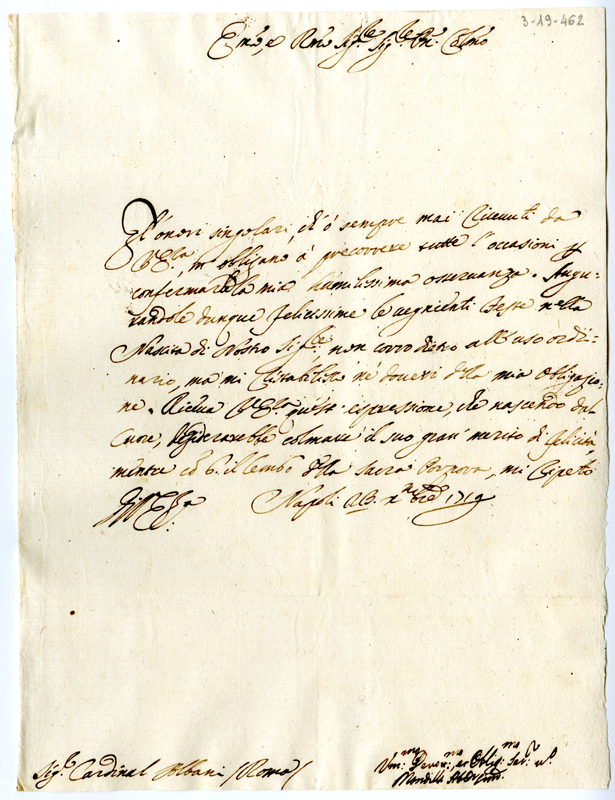 3-19-462
Em.º, e Rmo Sig.re Sig.re Pñ. Colmo
Gl'onori singolari, ch'ò sempre mai ricevuti da
V. Em.a, m'obligano à precorrere tutte l'occasioni p
confermarle la mia humilissima osservanza. Augu-
randole dunque felicissime le vegnienti feste nella
Nascita di Nostro Sig.re, non corro dietro all'uso ordi-
nario, ma mi ristabilisco ne' doveri della mia obligazio-
ne. Riceva V. Em.a queste espressione, che nascendo dal
Cuore, desiderarebbe colmare il suo gran merito di felicità
mentre col b. il lembo della sacra Porpora, mi ripeto
Di V. Em.a Napoli 23. Xbre 1719
Sig.r Cardinal Albani Roma
Um.mo Dever.mo et Oblig.mo Ser.r v.º